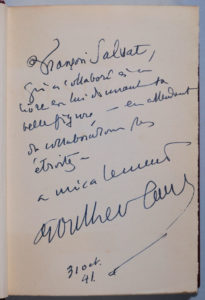 à François Salvat,
qui a collaboré à ce
livre en lui donnant sa
belle figure — en attendant
de collaborations plus
étroites —
amicalement
31 oct.
41.